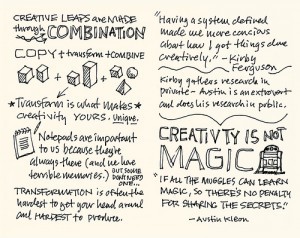 CREATIVE LEAPS ARE MADE
through COMBINATION
COPY + transform + COMBINE
*Transform is what makes*
creativity YOURS. Unique.
Notepads are important
to us because they're
always there (and we have
terrible memories.) BUT SOME
DON'T NEED
ONE...
TRANSFORMATION is often the
hardest to get your head around
and HARDEST to produce.
"Having a system defined
made me more concious
about how I got things done
creatively." - Kirby
Ferguson
Kirby gathers research in
private - Austin is an extrovert
and does his research in public.
CREATIVTY IS NOT
MAGIC
"IF ALL THE MUGGLES CAN LEARN
MAGIC, SO THERE'S NO PENALTY
FOR SHARING THE SECRETS."
- AUSTIN KLEON